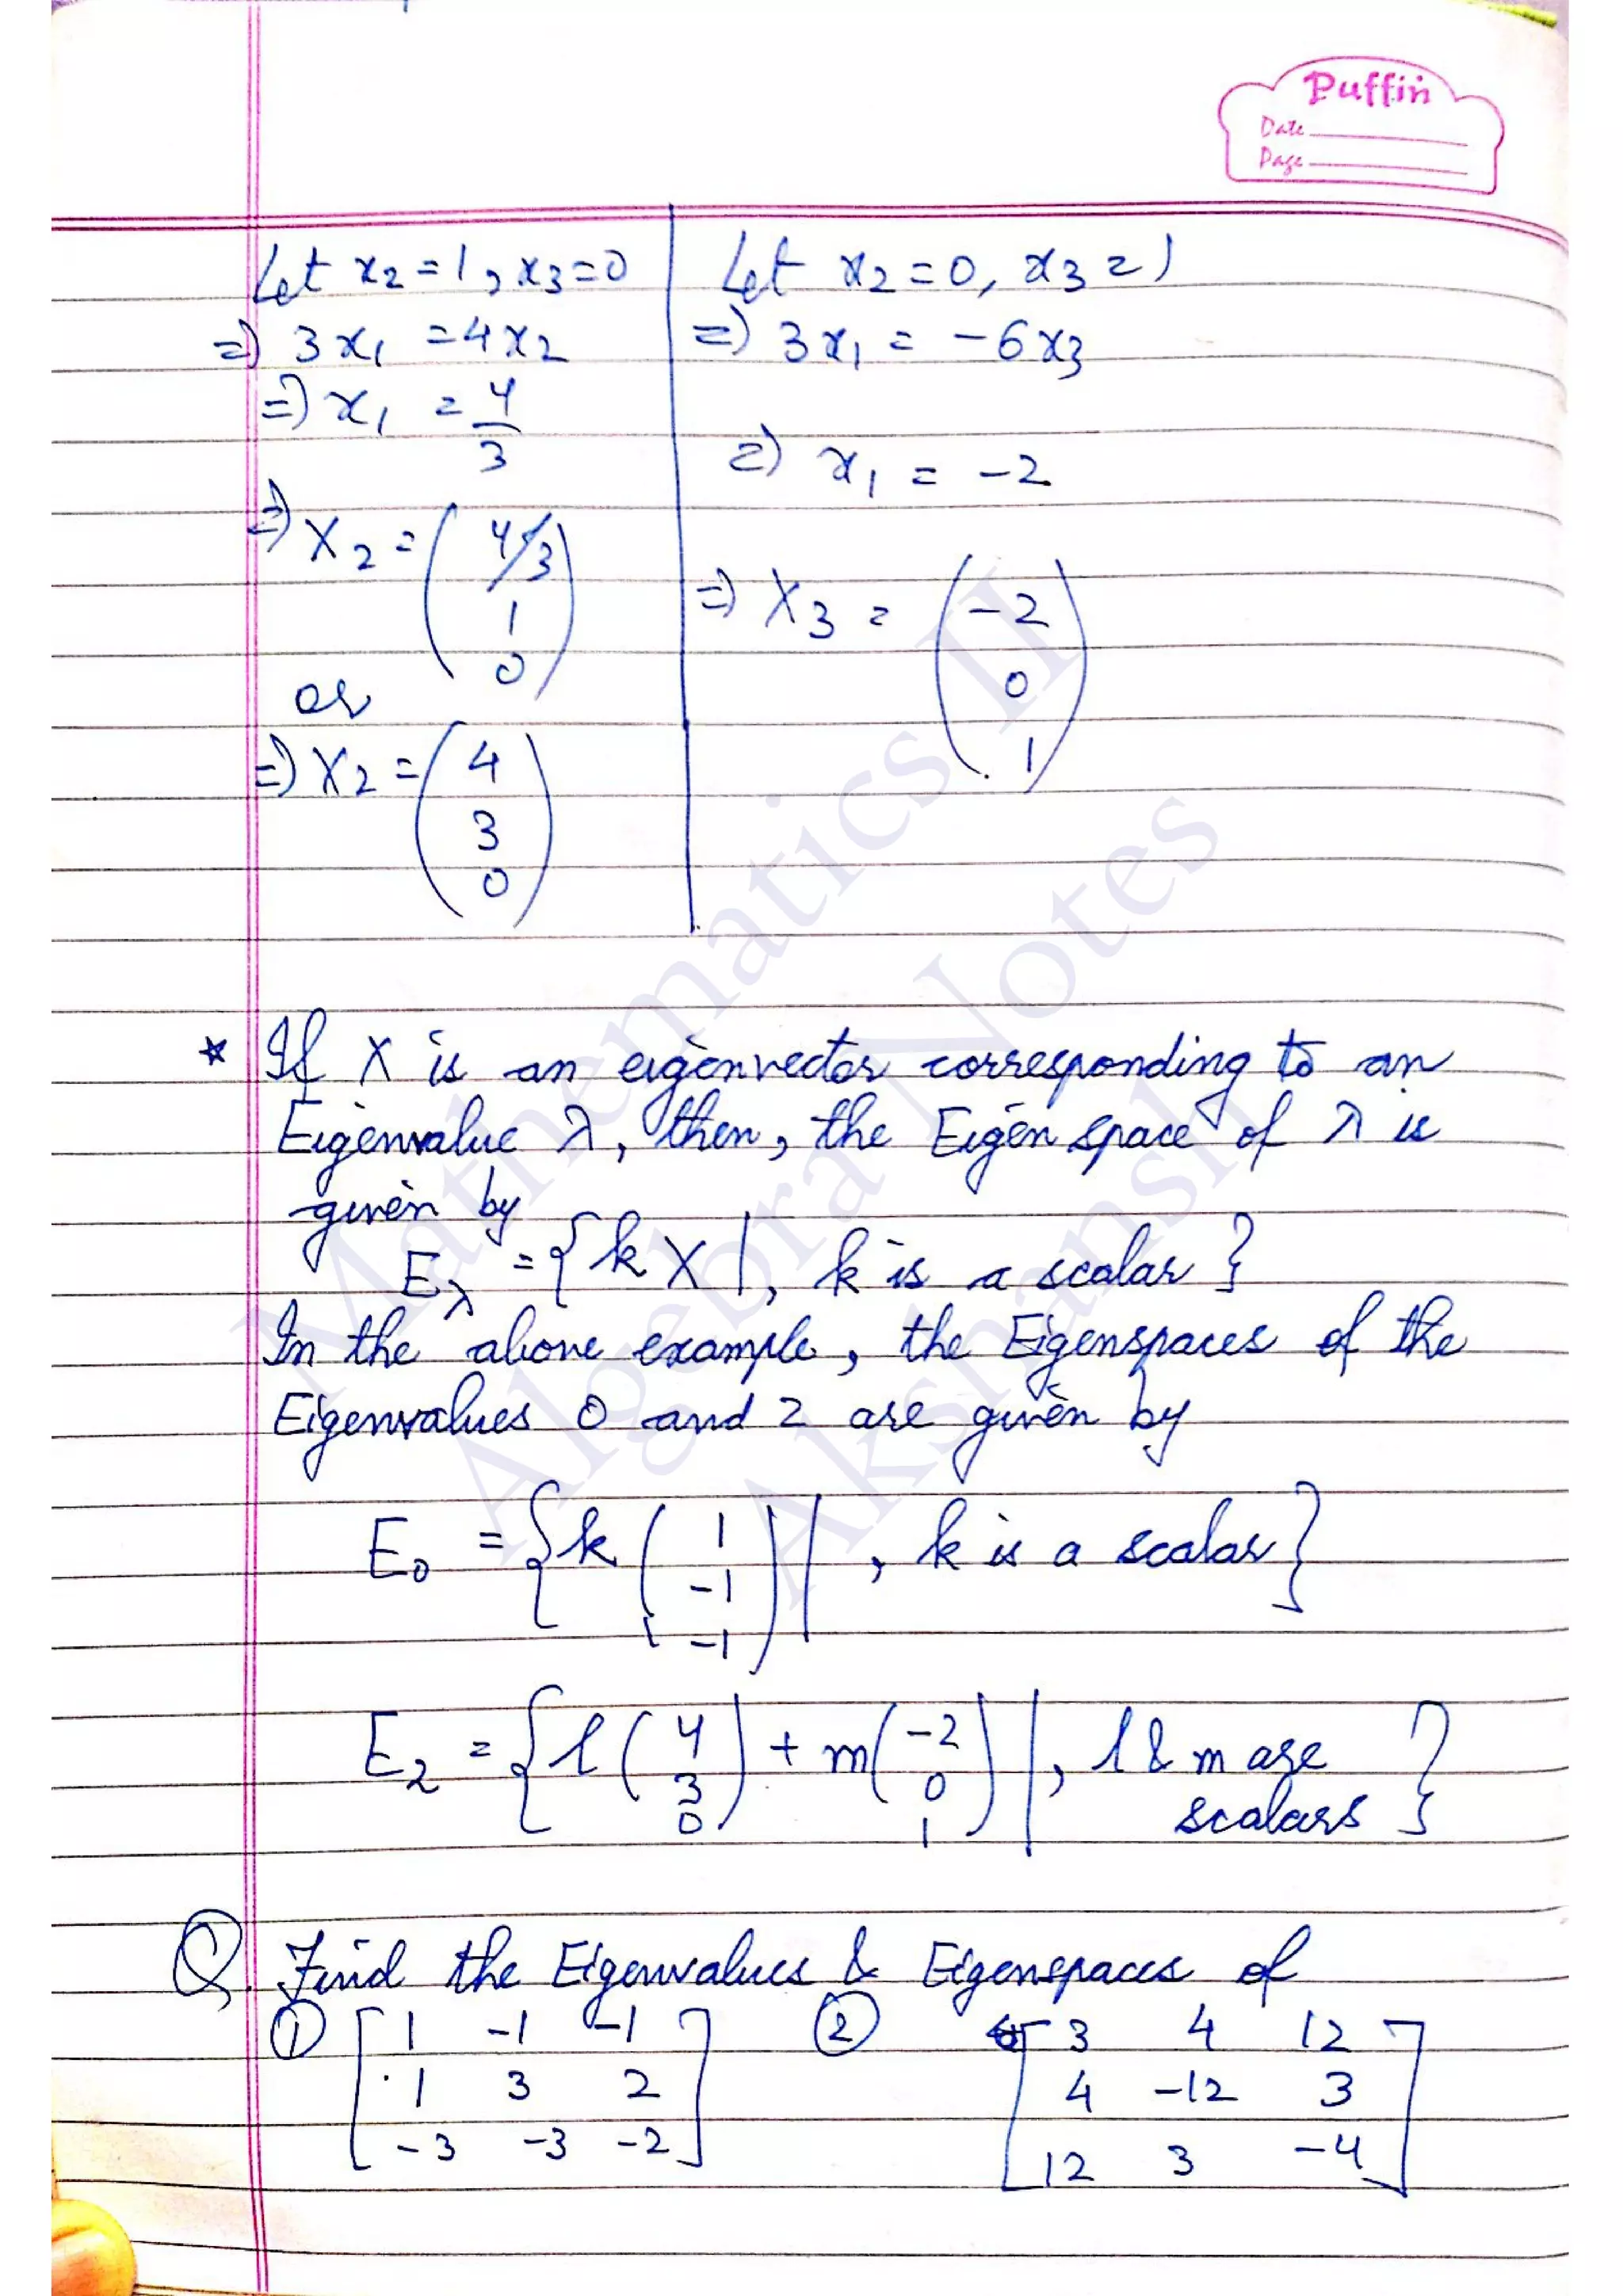 Puffin
Date
Page
Let x2 = 1, x3 = 0
=) 3x1 = 4x2
=) x1 = 4/3
=) X2 = (4/3
1
0)
or
=) X2 = (4
3
0)
Let x2 = 0, x3 = 1
=) 3x1 = -6x3
=) x1 = -2
=) X3 = (-2
0
1)
* If X is an eigenvector corresponding to an
Eigenvalue λ, then, the Eigen space of λ is
given by
Eλ = {k X |, k is a scalar}
In the above example, the Eigenspaces of the
Eigenvalues 0 and 2 are given by
E0 = {k (1
-1
-1) | , k is a scalar}
E2 = {l (4
3
0) + m(-2
0
1) |, l & m are
scalars}
Q. Find the Eigenvalues & Eigenspaces of
① [1 -1 -1
1 3 2
-3 -3 -2]
② [3 4 12
4 -12 3
12 3 -4]
Mathematics II
Algebra Notes
Akshansh